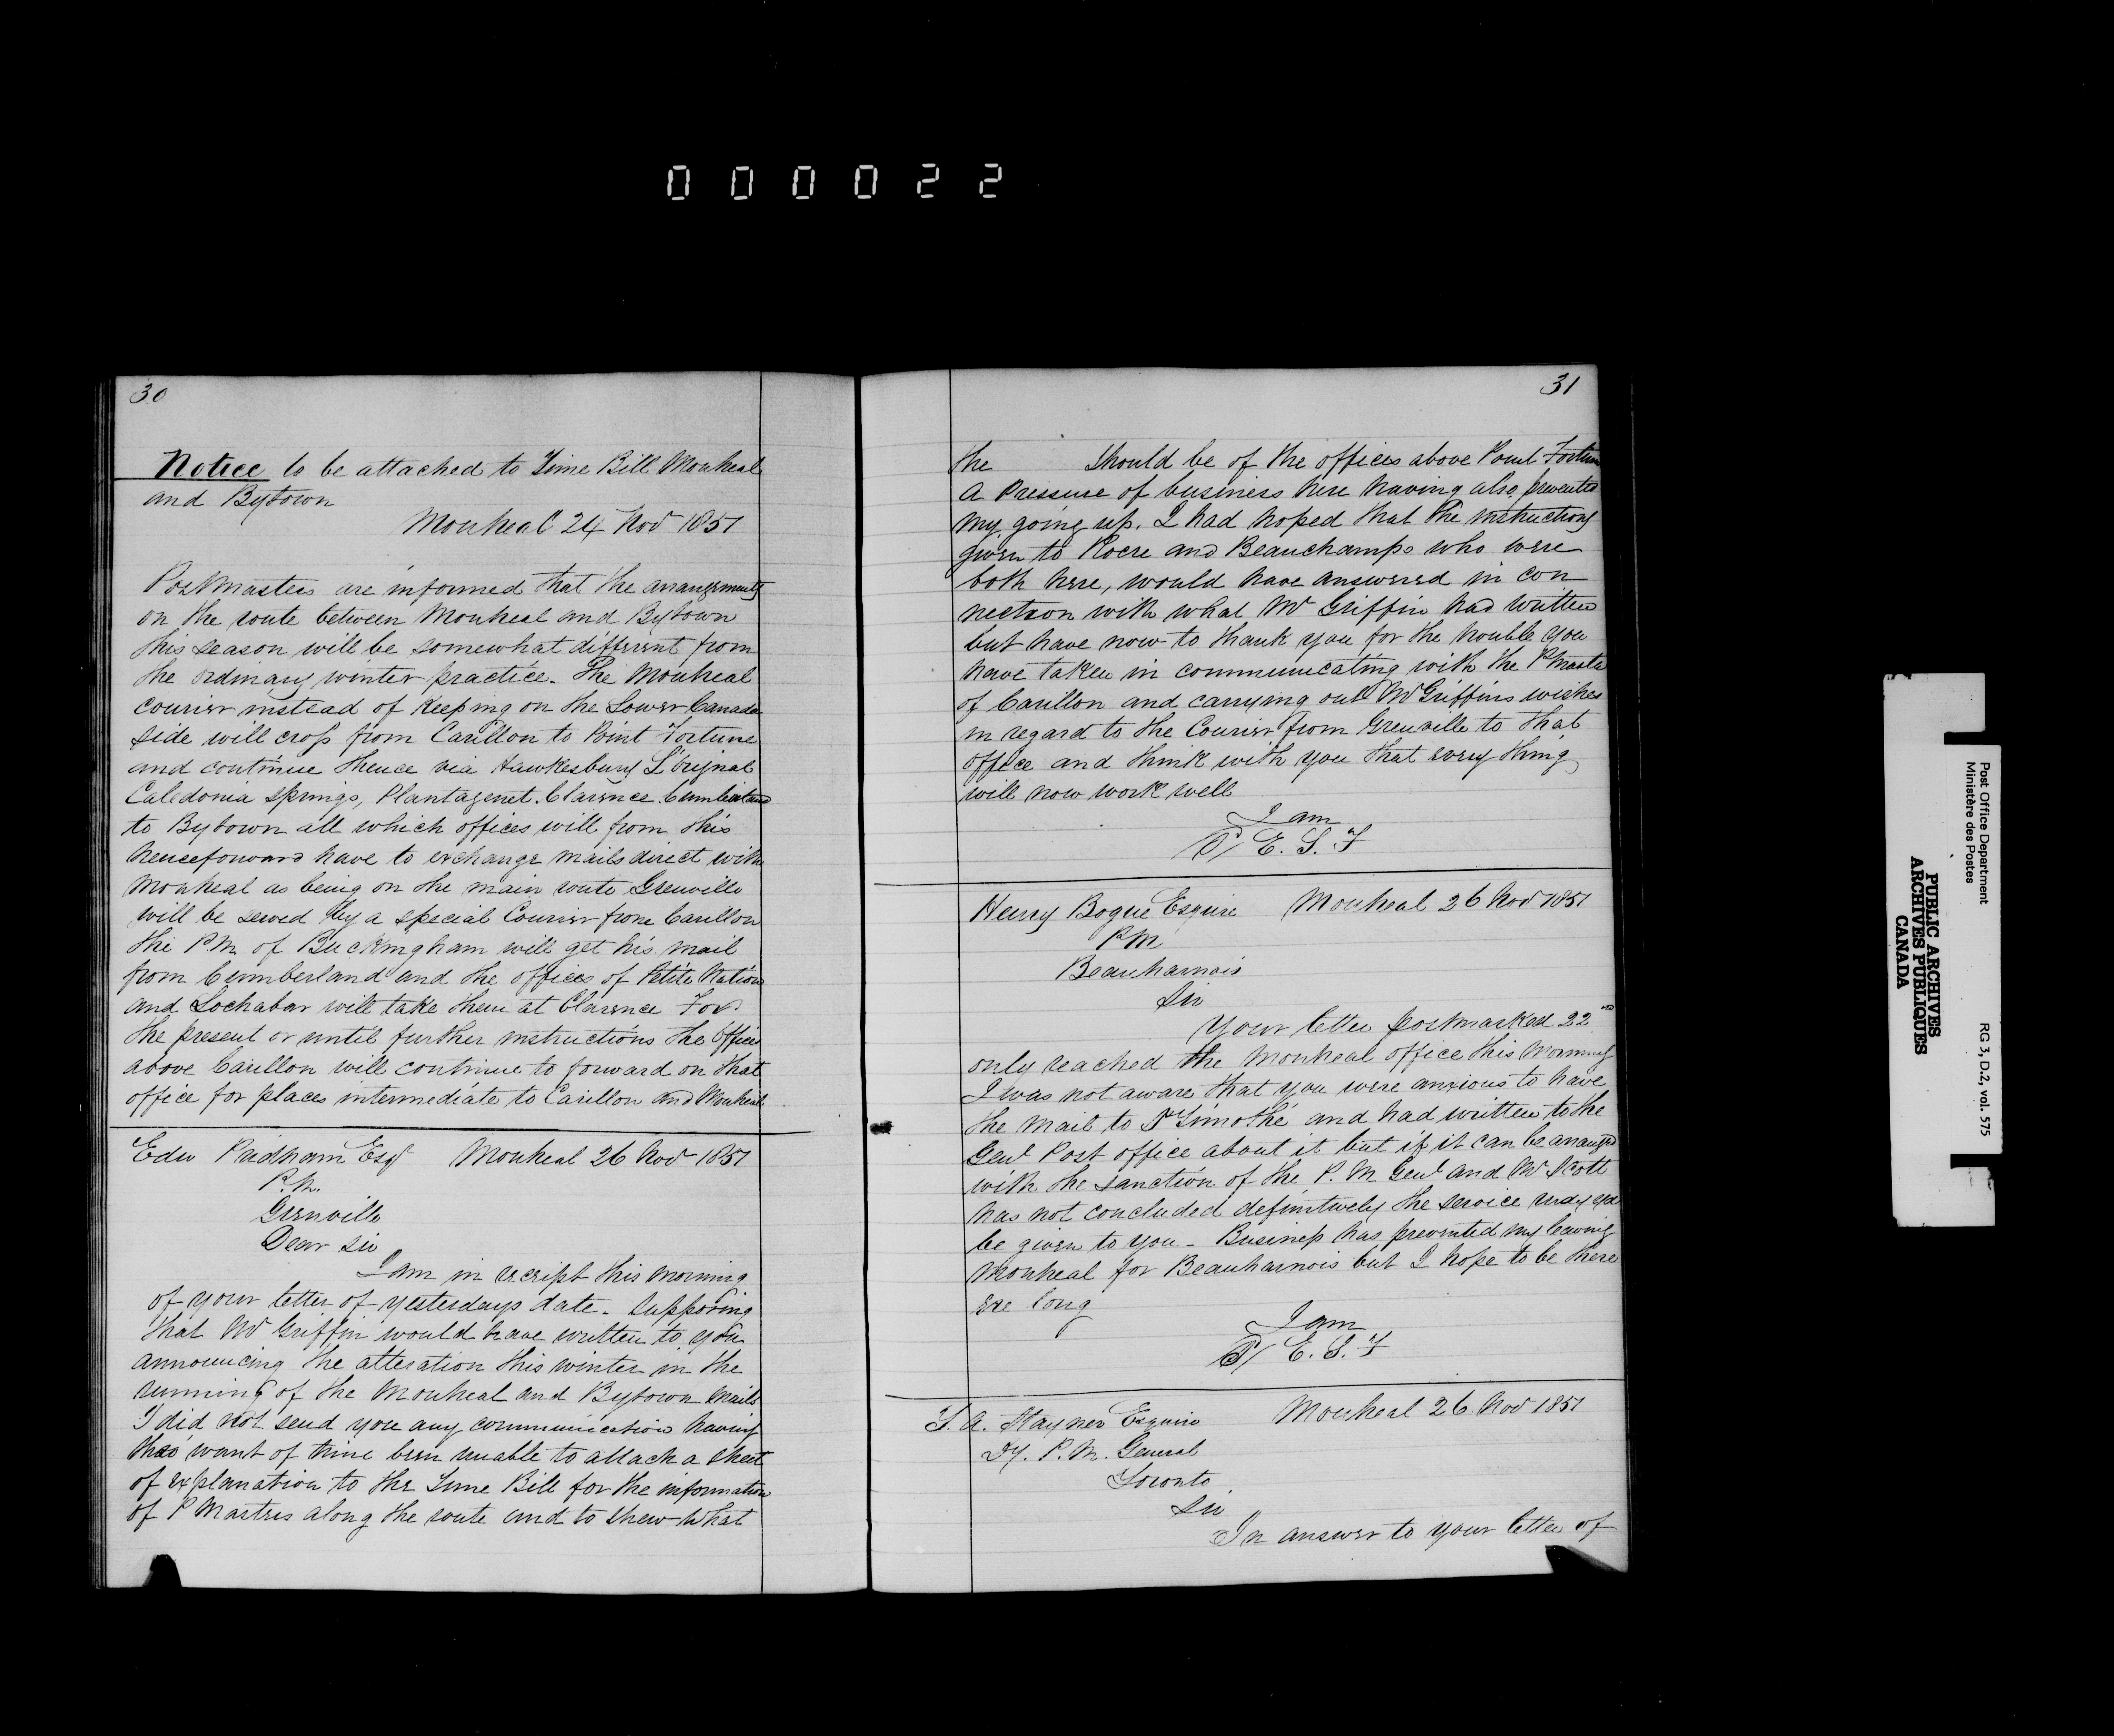 000022
30
Notice to be attached to Time Bill Montreal
and Bytown
Montreal 24 Nov 1851
Postmasters are informed that the arrangements
on the route between Montreal and Bytown
this season will be somewhat different from
the ordinary winter practice. The Montreal
Courier instead of keeping on the Lower Canada
side will cross from Carillon to Point Fortune
and continue thence via Hawkesbury L'orignal
Caledonia springs, Plantagenet. Clarence. Cumberland
to Bytown all which offices will from this
henceforward have to exchange mails direct with
Montreal as being on the main route Grenville
will be served by a special Courier from Carillon
the P.M. of Buckingham will get his mail
from Cumberland and the offices of Petite Nation
and Lochabar will take them at Clarence For
the present or until further instructions the offices
above Carillon will continue to forward on that
office for places intermediate to Carillon and Montreal
Edw Pridham Esqr Montreal 26 Nov 1851
P.M.
Grenville
Dear Sir
I am in receipt this morning
of your letter of yesterdays date. Supposing
that Mr Griffin would have written to you
announcing the alteration this winter in the
running of the Montreal and Bytown Mails
I did not send you any communication having
thro want of time been unable to attach a sheet
of explanation to the Time Bill for the information
of P Masters along the route and to shew what
31
the should be of the offices above Point Fortune
a Pressure of business here having also prevented
my going up. I had hoped that the instructions
given to and Beauchamps who were
both here, would have answered in con
nection with what Mr Griffin had written
but have now to thank you for the trouble you
have taken in communicating with the P Master
of Carillon and carrying out Mr Griffins wishes
in regard to the Courier from Grenville to that
office and think with you that every thing
will now work well
I am
E. S. F
Henry Bogue Esquire Montreal 26 Nov 1851
P M
Beauharnois
Sir
Your letter postmarked 22nd
only reached the Montreal office this Morning
I was not aware that you were anxious to have
the Mail to St Timothé and had written to the
Genl Post office about it but if it can be arranged
with the sanction of the P. M Genl and Mr Scott
has not concluded definitively the service may yet
be given to you - Business has prevented my leaving
Montreal for Beauharnois but I hope to be there
ere long
I am
E. S. F
T. A. Stayner Esquire Montreal 26 Nov 1851
Dy. P. M. General
Toronto
Sir
In answer to your letter of
Post Office Department
Ministère des Postes
RG 3, D.2, vol. 575
PUBLIC ARCHIVES
ARCHIVES PUBLIQUES
CANADA